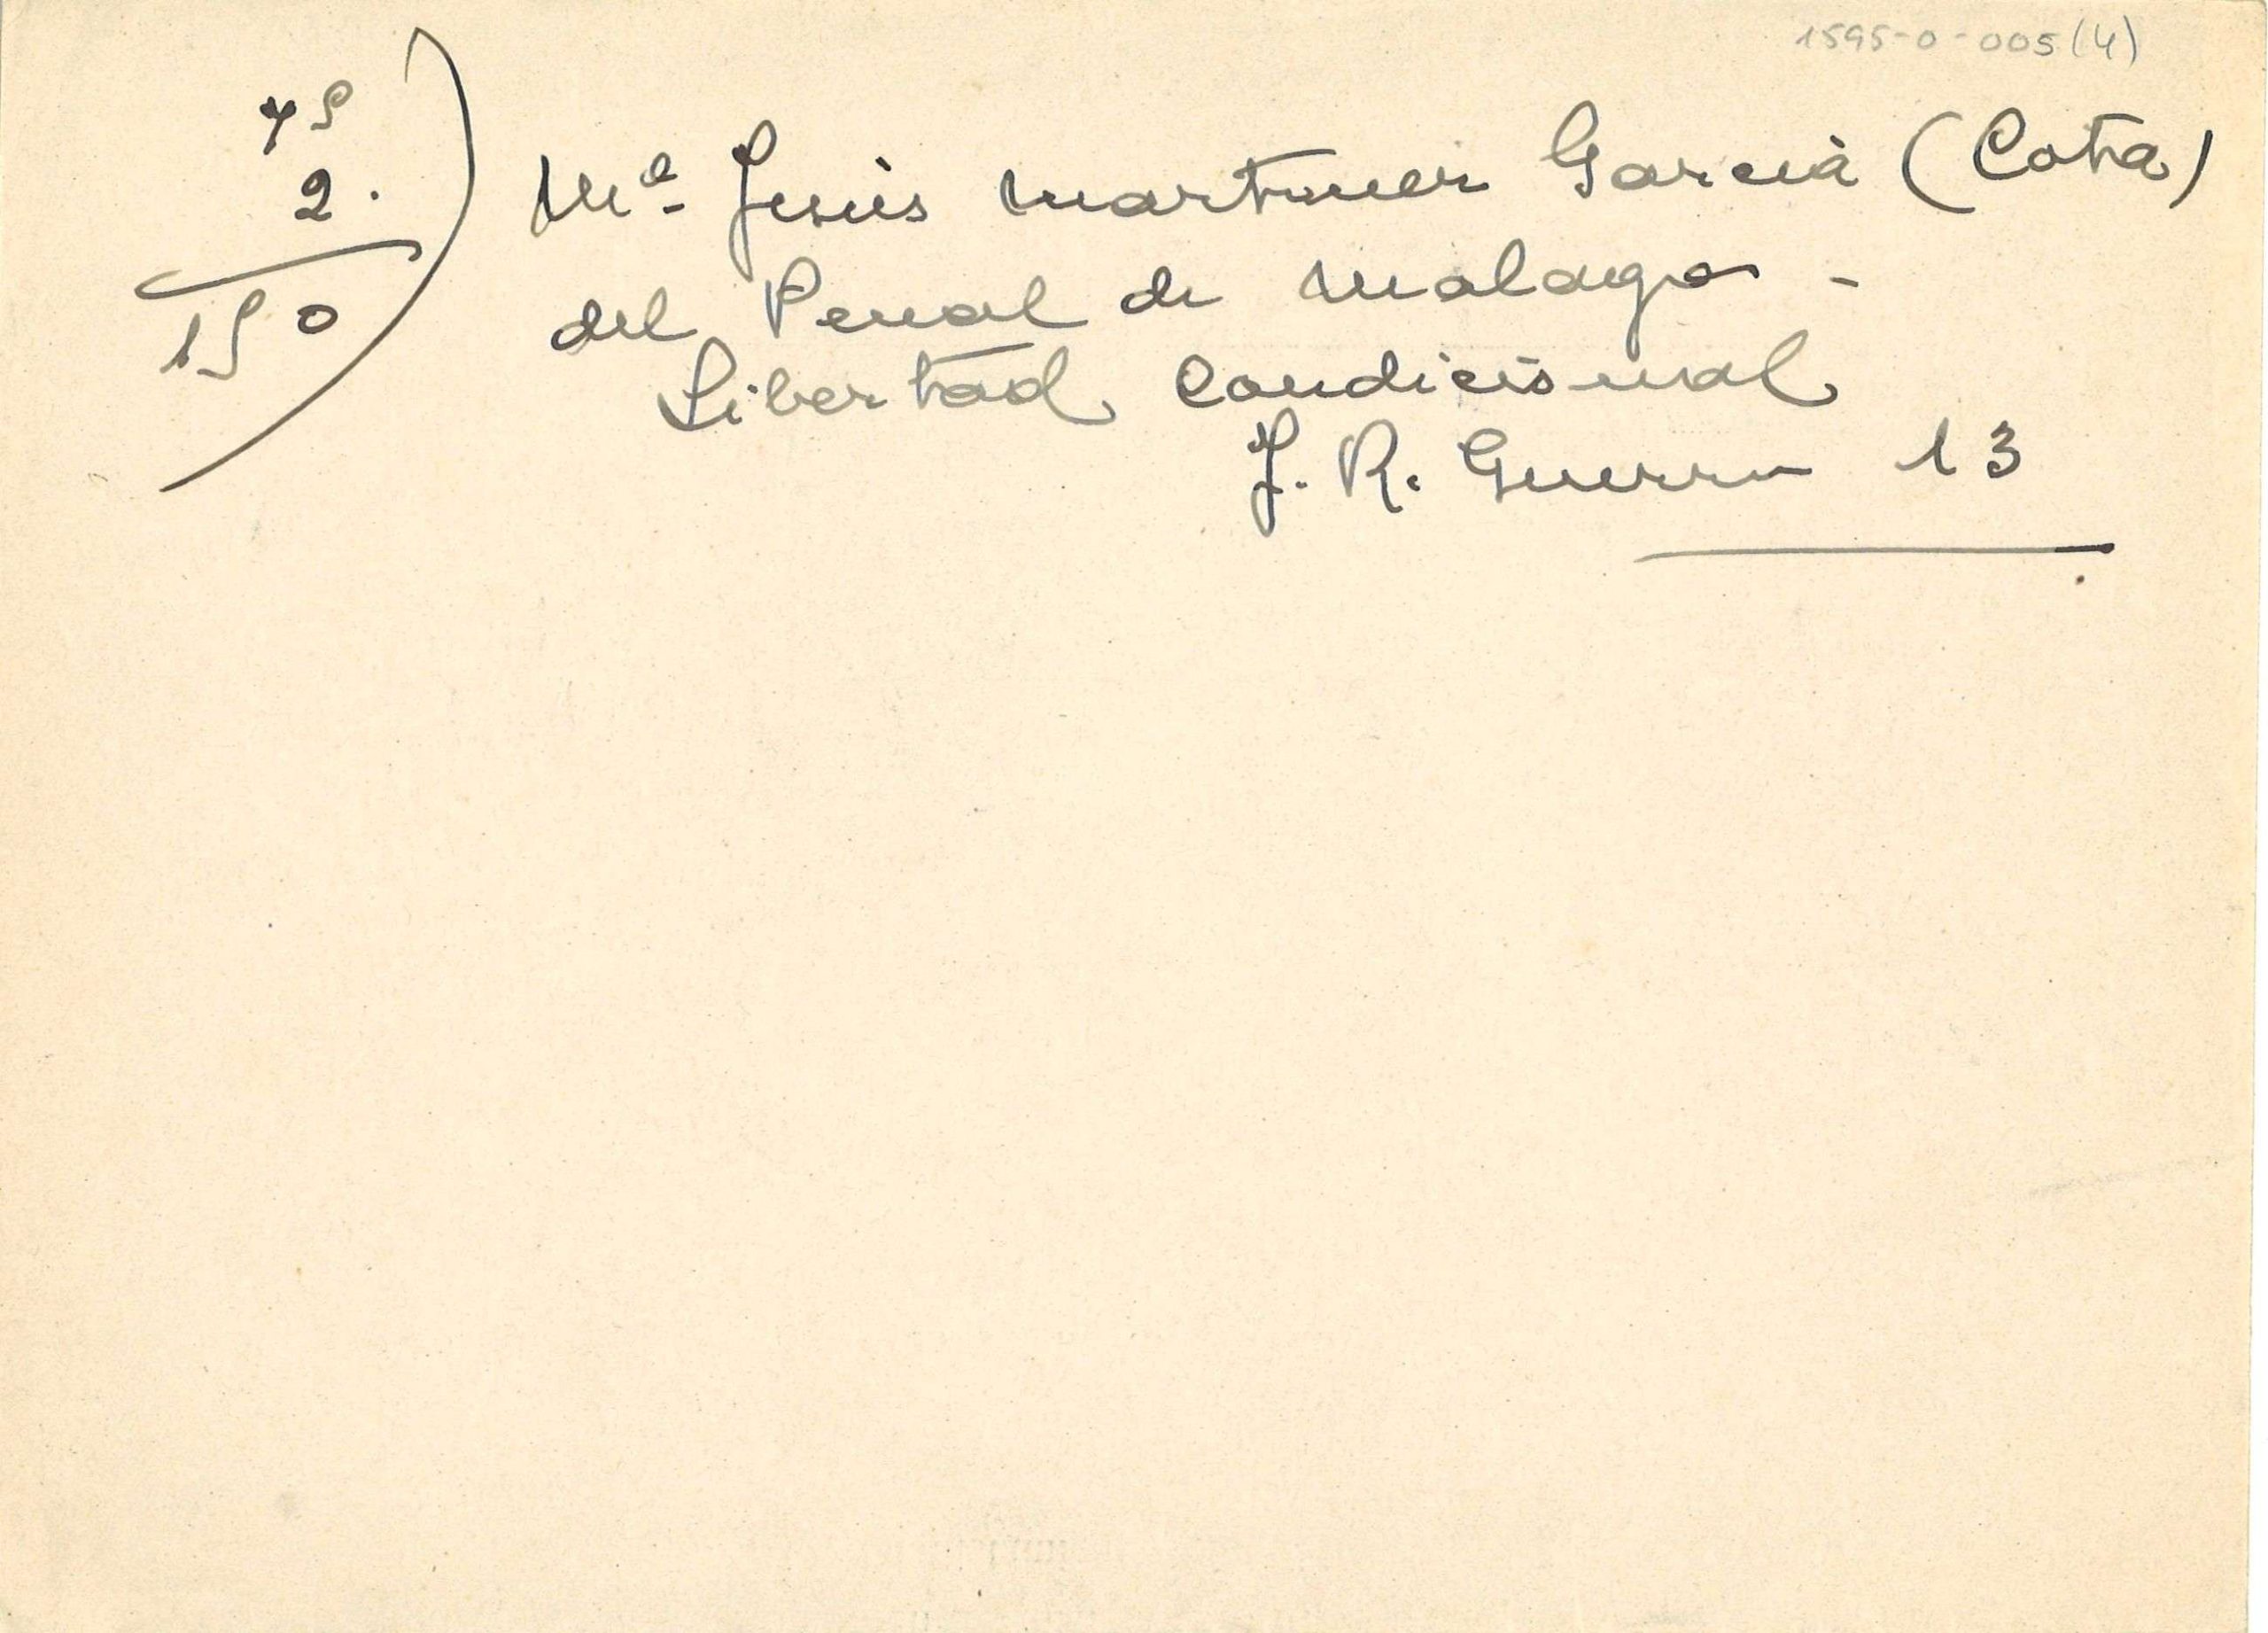 1595-0-005(4)
75
2.
150
Mª Jesús Martinez García (Cotra)
del Penal de Malaga -
Libertad Condicional
J. R. Guerra 13